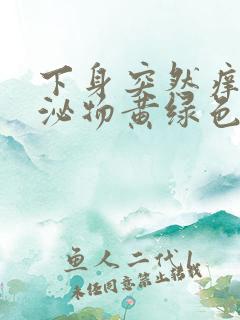 下身突然痒
泌物黄绿色
鱼人二代/
未经同意禁止转载